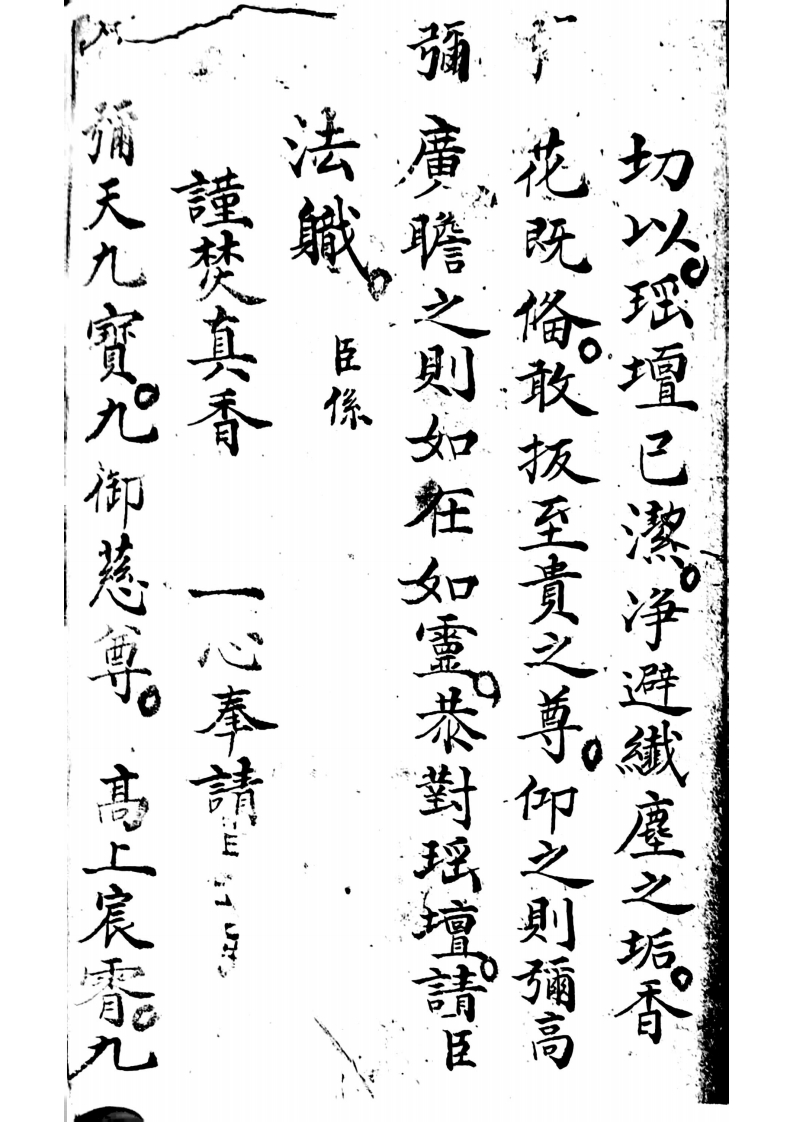 切以瑶壇已潔净避纎塵之垢香
花既俻敢扳至貴之尊仰之則彌高
彌廣瞻之則如在如靈恭對瑶壇請臣
法職臣係
謹焚真香 一心奉請
彌天九寳九御慈尊 髙上宸霄九